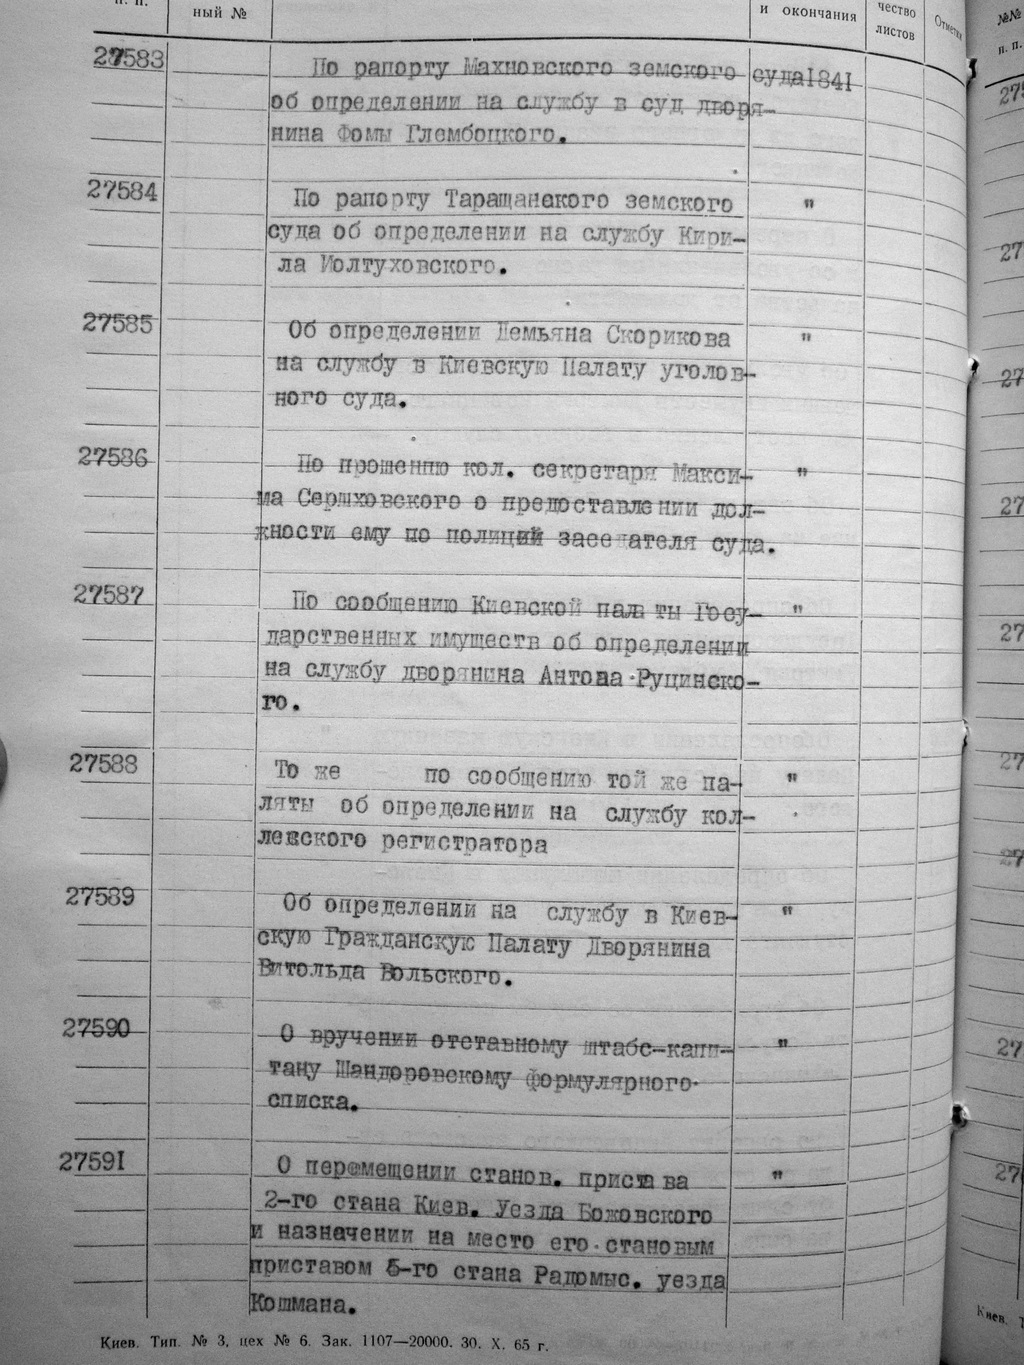 п. п.
ный №
и окончания
чество
листов
Отметки
№№
п. п.
27583
По рапорту Махновского земского суда 1841
об определении на службу в суд дворя-
нина Фомы Глембоцкого.
27584
По рапорту Таращанского земского "
суда об определении на службу Кири-
ла Иолтуховского.
27585
Об определении Демьяна Скорикова "
на службу в Киевскую Палату уголов-
ного суда.
27586
По прошению кол. секретаря Макси- "
ма Сершховского о предоставлении дол-
жности ему по полиций заседателя суда.
27587
По сообщению Киевской пала ты Госу- "
дарственных имуществ об определении
на службу дворянина Антона Руцинско-
го.
27588
То же по сообщению той же па- "
ляты об определении на службу кол-
лежского регистратора
27589
Об определении на службу в Киев- "
скую Гражданскую Палату Дворянина
Витольда Вольского.
27590
О вручении отставному штабс-капи- "
тану Шандоровскому формулярного
списка.
27591
О перемещении станов. приста ва "
2-го стана Киев. Уезда Божовского
и назначении на место его становым
приставом 5-го стана Радомыс. уезда
Кошмана.
Киев. Тип. № 3, цех № 6. Зак. 1107—20000. 30. X. 65 г.